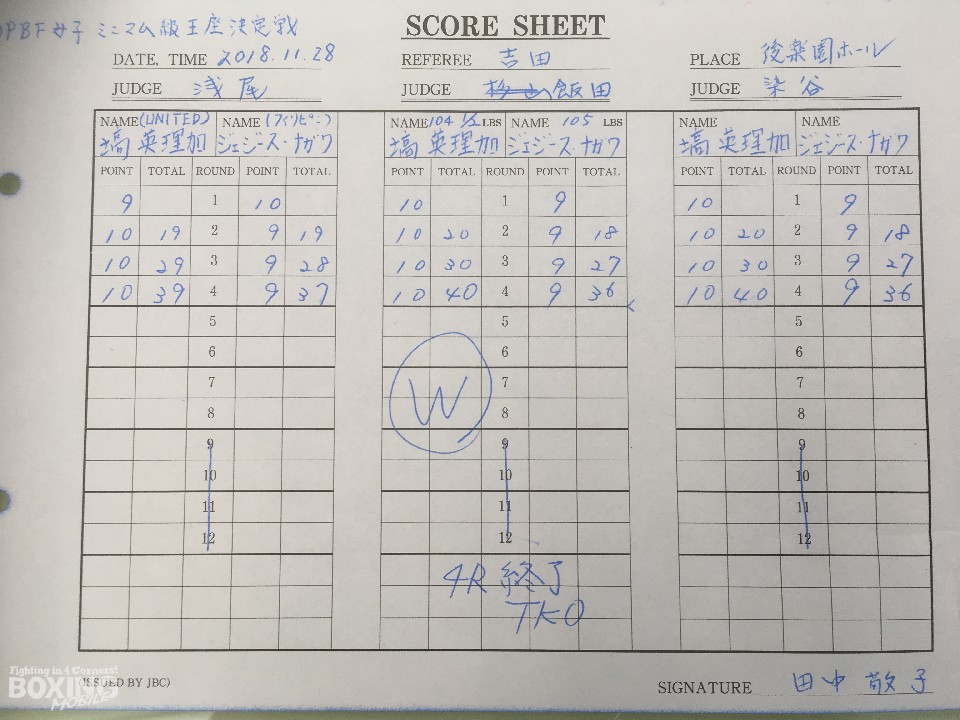 OPBF女子 ミニマム級王座決定戦
SCORE SHEET
DATE, TIME 2018.11.28 REFEREE 吉田 PLACE 後楽園ホール
JUDGE 浅尾 JUDGE 飯田 JUDGE 染谷
NAME (UNITED) NAME (フィリピン) NAME 104 1/2 LBS NAME 105 LBS NAME NAME
塙 英理加 ジェジース・ナガワ 塙 英理加 ジェジース・ナガワ 塙 英理加 ジェジース・ナガワ
POINT TOTAL ROUND POINT TOTAL POINT TOTAL ROUND POINT TOTAL POINT TOTAL ROUND POINT TOTAL
9 1 10 10 1 9 10 1 9
10 19 2 9 19 10 20 2 9 18 10 20 2 9 18
10 29 3 9 28 10 30 3 9 27 10 30 3 9 27
10 39 4 9 37 10 40 4 9 36 10 40 4 9 36
5 5 5
6 6 6
7 W 7 7
8 8 8
9 9 9
10 10 10
11 11 11
12 12 12
4R 終了
TKO
Fighting in 4 Corners!
BOXING
MOBILE
(ISSUED BY JBC) SIGNATURE 田中敬子